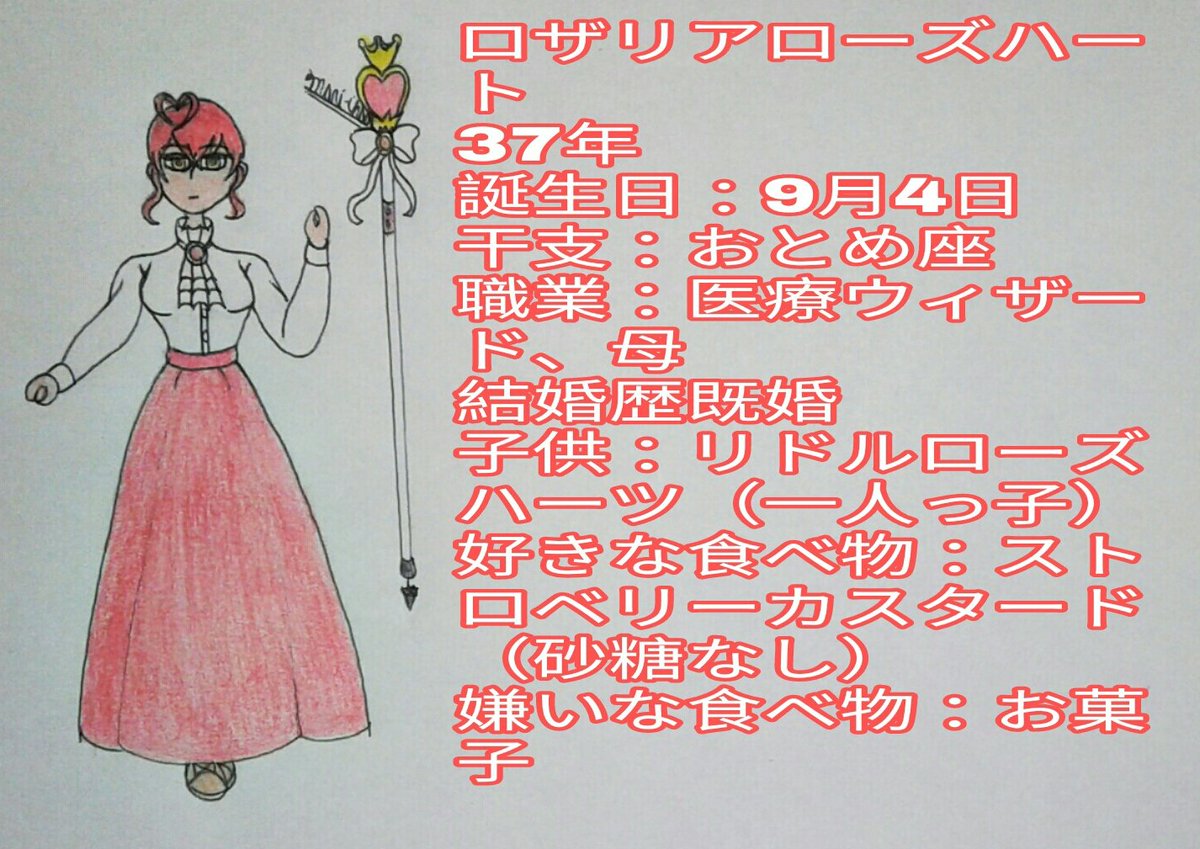 ロザリアローズハー
ト
37年
誕生日：9月4日
干支：おとめ座
職業：医療ウィザー
ド、母
結婚歴既婚
子供：リドルローズ
ハーツ（一人っ子）
好きな食べ物：スト
ロベリーカスタード
（砂糖なし）
嫌いな食べ物：お菓
子